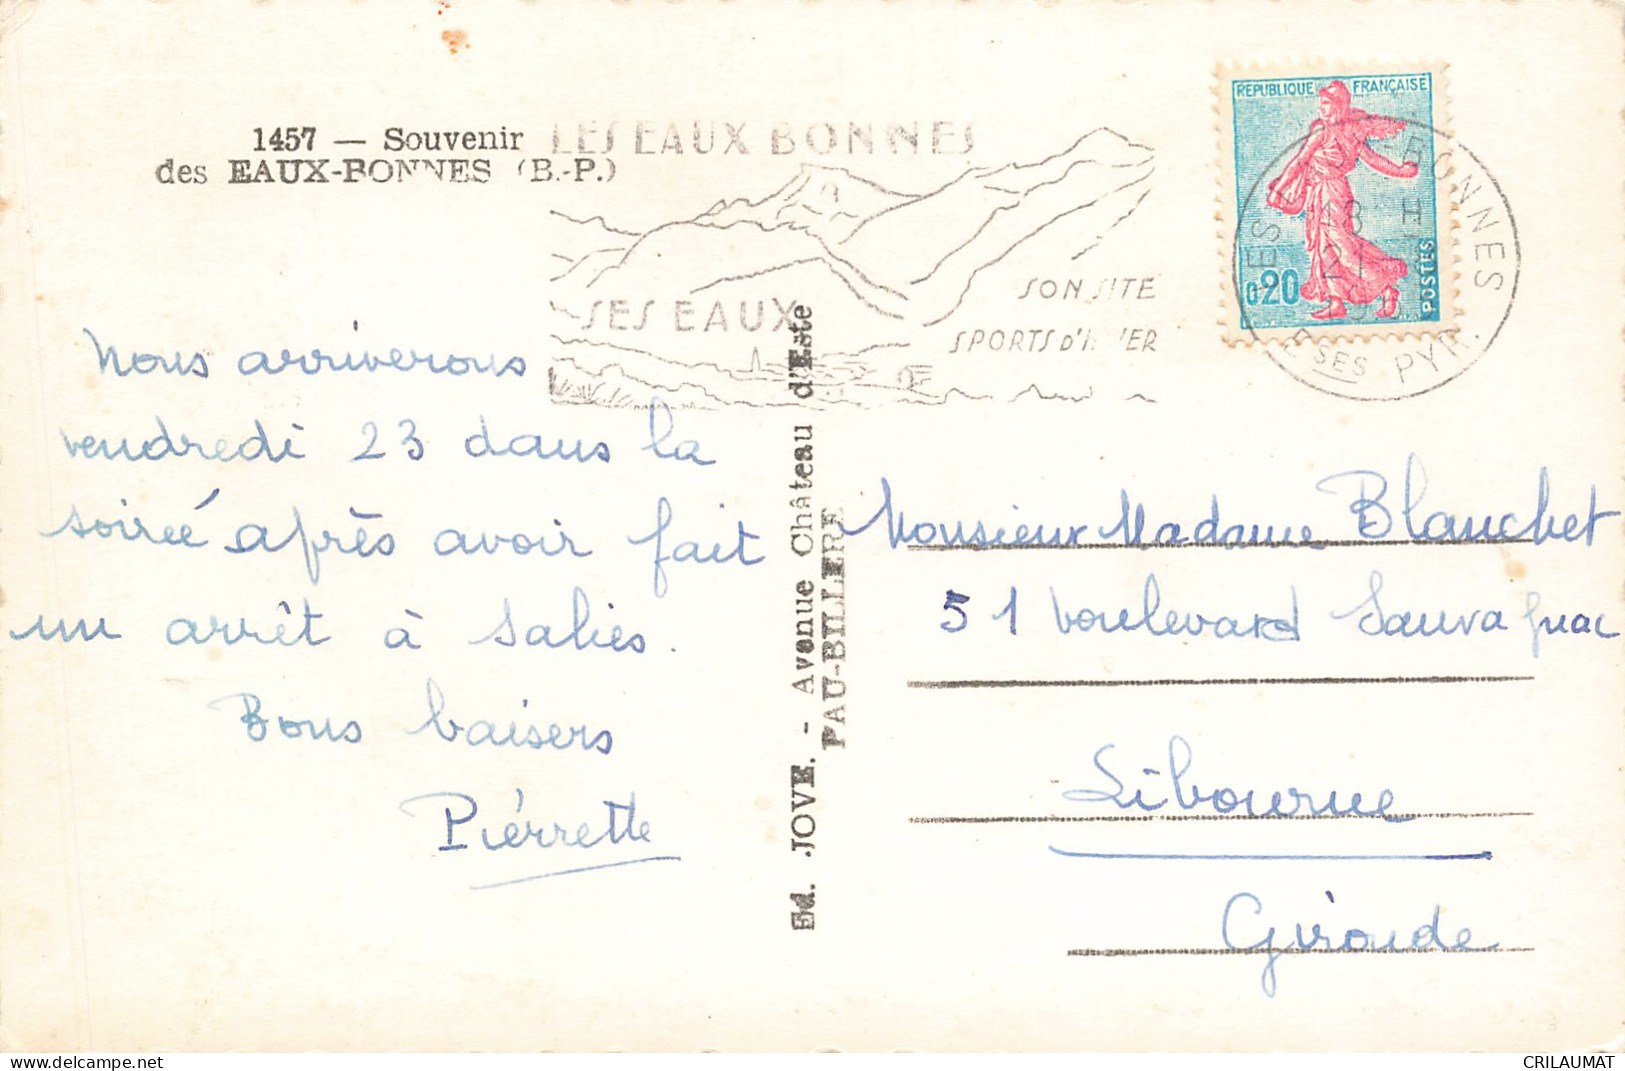 1457 — Souvenir
des EAUX-BONNES (B.-P.)
LES EAUX BONNES
SES EAUX
SON SITE
SPORTS D'HIVER
RÉPUBLIQUE FRANÇAISE
0,20
POSTES
LES EAUX-BONNES
18 H
21
BSES PYR.
Nous arriverons
vendredi 23 dans la
soireé après avoir fait
un arrêt à Salies.
Bons baisers
Piérrette
Ed. JOVE. - Avenue Château d'Este
PAU-BILLERE
Monsieur Madame Blanchet
51 boulevard Sauvagnac
Libourne
Gironde
delcampe.net
CRILAUMAT